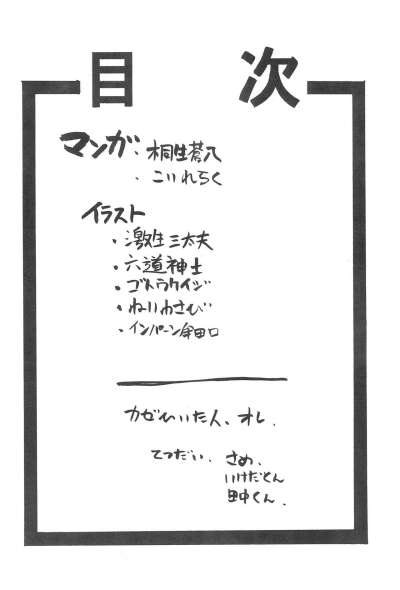 目次
マンガ・桐生蒼八
・こいれらく
イラスト
・激生三太夫
・六道神士
・ゴトウケイジ
・ねりわさび
・インパーン
カゼひいた人、オレ.
てつだい. さめ.
いけだくん
田中くん.